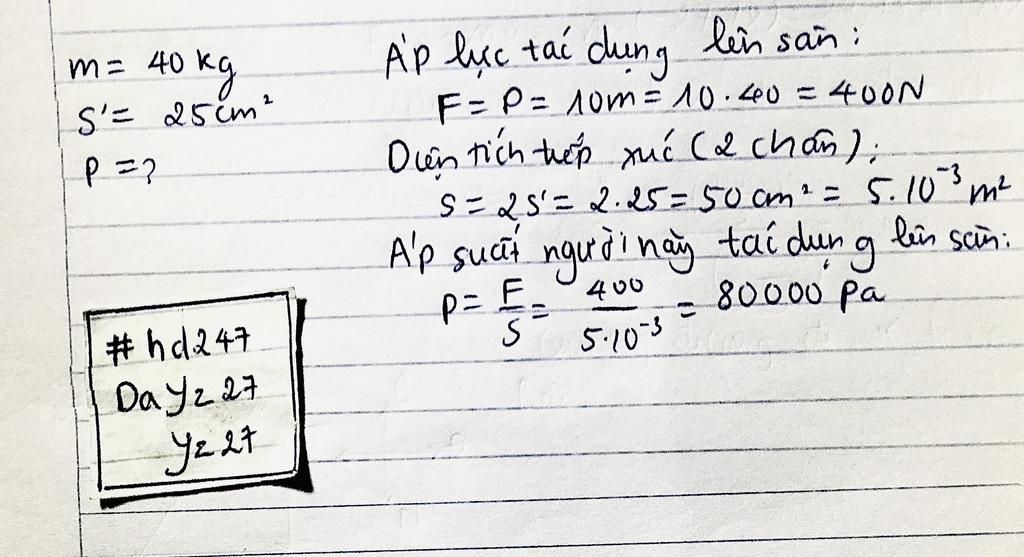 m = 40 kg
S' = 25 cm²
p = ?
Áp lực tác dụng lên sàn:
F = P = 10m = 10.40 = 400N
Diện tích tiếp xúc (2 chân):
S = 2S' = 2.25 = 50 cm² = 5.10⁻³ m²
Áp suất người này tác dụng lên sàn:
p = F/S = 400/5.10⁻³ = 80000 Pa
#hd247
DaYz27
Yz27